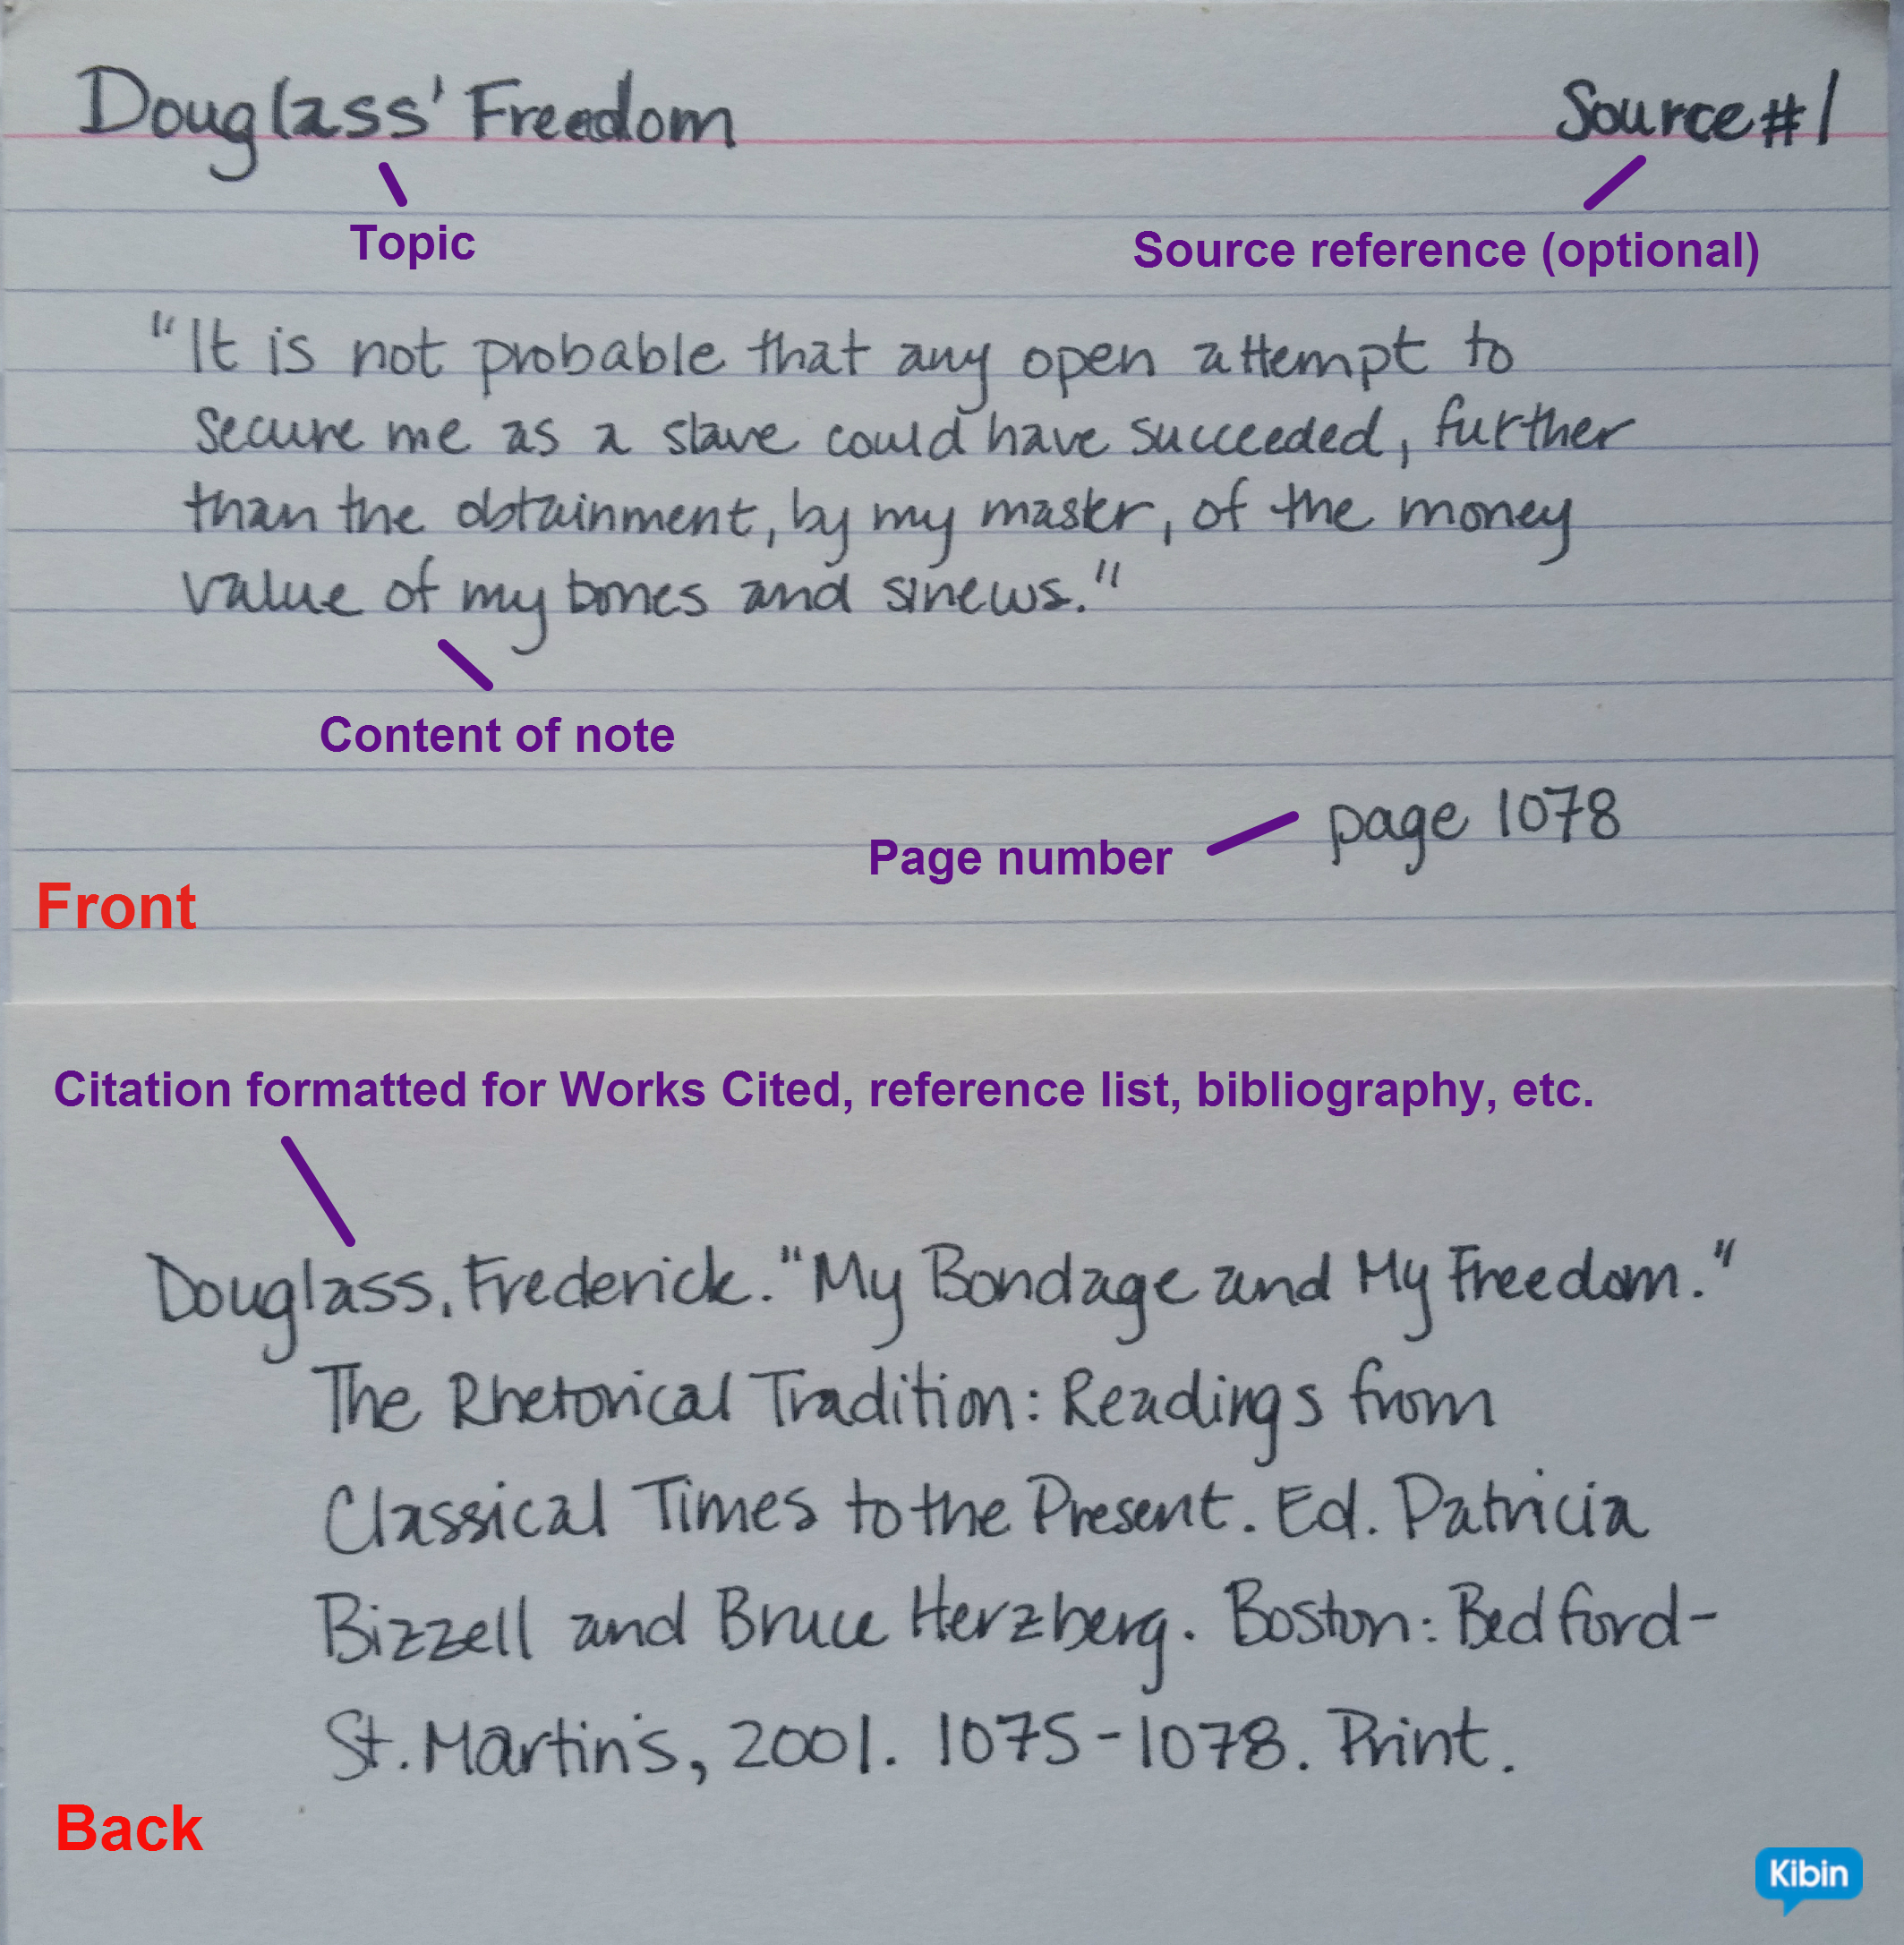 Douglass' Freedom
Source #1
Topic
Source reference (optional)
"It is not probable that any open attempt to
secure me as a slave could have succeeded, further
than the obtainment, by my master, of the money
value of my bones and sinews."
Content of note
page 1078
Page number
Front
Citation formatted for Works Cited, reference list, bibliography, etc.
Douglass, Frederick. "My Bondage and My Freedom."
The Rhetorical Tradition: Readings from
Classical Times to the Present. Ed. Patricia
Bizzell and Bruce Herzberg. Boston: Bedford-
St. Martin's, 2001. 1075-1078. Print.
Back
Kibin